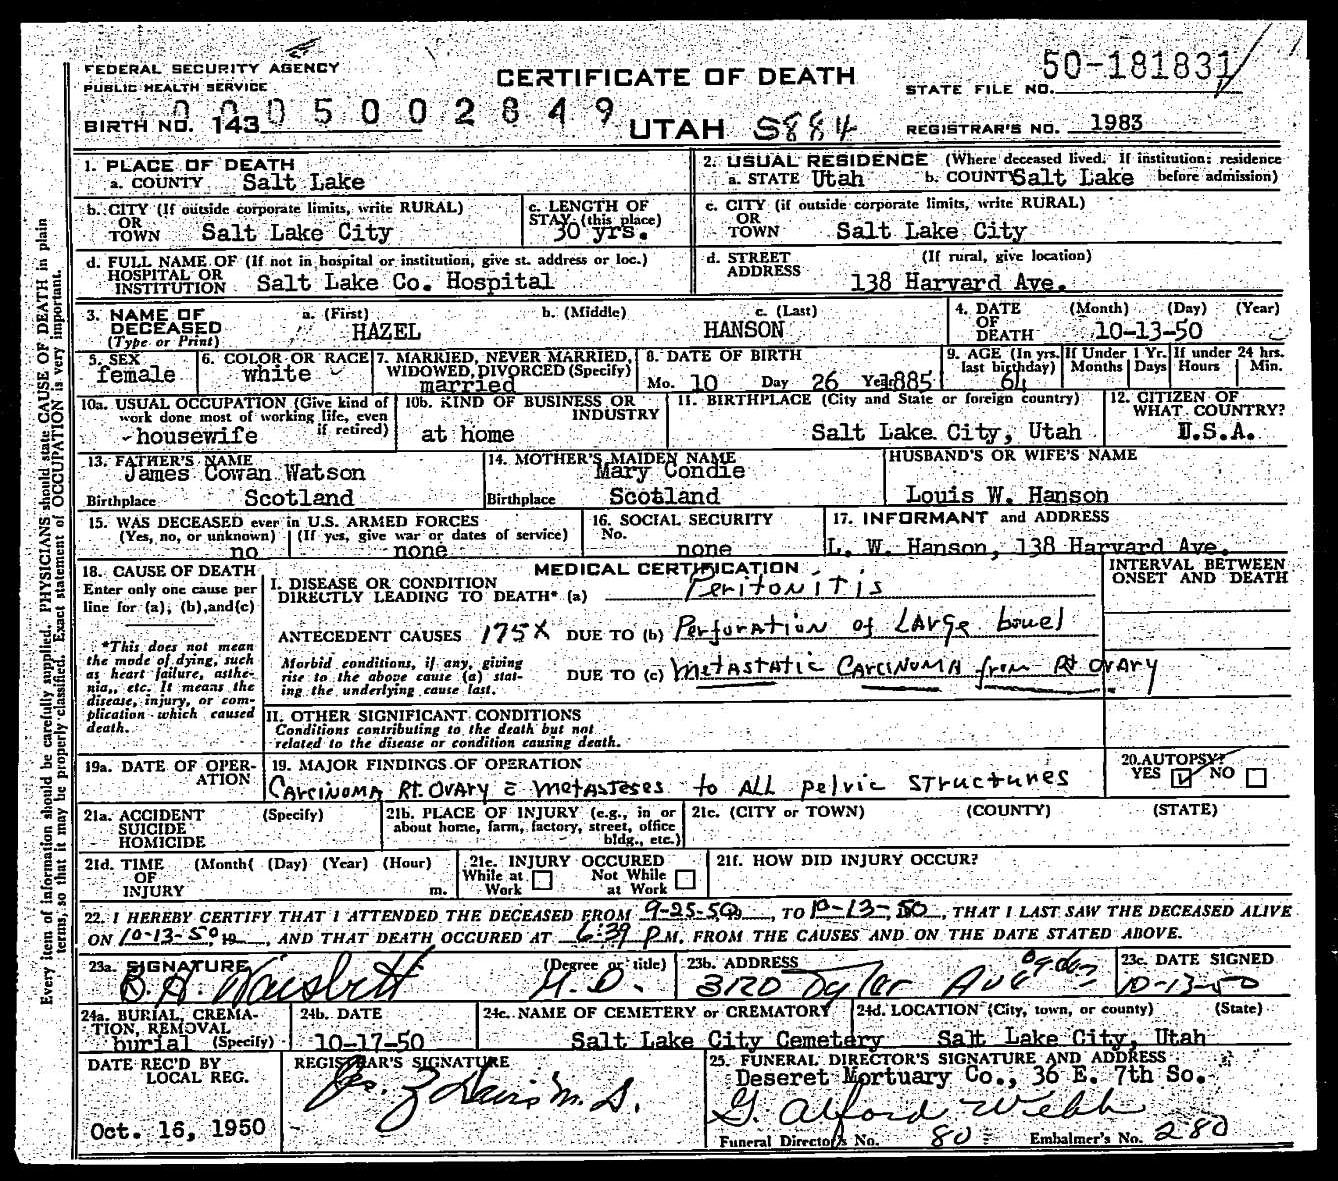 FEDERAL SECURITY AGENCY
PUBLIC HEALTH SERVICE
CERTIFICATE OF DEATH
50-181831
STATE FILE NO.
0005002849
BIRTH NO. 143
UTAH S884
REGISTRAR'S NO. 1983
1. PLACE OF DEATH
a. COUNTY Salt Lake
2. USUAL RESIDENCE (Where deceased lived. If institution: residence before admission)
a. STATE Utah b. COUNTY Salt Lake
b. CITY (If outside corporate limits, write RURAL)
OR
TOWN Salt Lake City
c. LENGTH OF
STAY (this place)
30 yrs.
c. CITY (if outside corporate limits, write RURAL)
OR
TOWN Salt Lake City
d. FULL NAME OF (If not in hospital or institution, give st. address or loc.)
HOSPITAL OR
INSTITUTION Salt Lake Co. Hospital
d. STREET (If rural, give location)
ADDRESS 138 Harvard Ave.
3. NAME OF
DECEASED
(Type or Print)
a. (First) b. (Middle) c. (Last)
HAZEL HANSON
4. DATE (Month) (Day) (Year)
OF
DEATH 10-13-50
5. SEX
female
6. COLOR OR RACE
white
7. MARRIED, NEVER MARRIED,
WIDOWED, DIVORCED (Specify)
married
8. DATE OF BIRTH
Mo. 10 Day 26 Year 1885
9. AGE (In yrs.
last birthday)
64
If Under 1 Yr.
Months Days
If under 24 hrs.
Hours Min.
10a. USUAL OCCUPATION (Give kind of
work done most of working life, even
if retired)
housewife
10b. KIND OF BUSINESS OR
INDUSTRY
at home
11. BIRTHPLACE (City and State or foreign country)
Salt Lake City, Utah
12. CITIZEN OF
WHAT COUNTRY?
U.S.A.
13. FATHER'S NAME
James Cowan Watson
Birthplace Scotland
14. MOTHER'S MAIDEN NAME
Mary Condie
Birthplace Scotland
HUSBAND'S OR WIFE'S NAME
Louis W. Hanson
15. WAS DECEASED ever in U.S. ARMED FORCES
(Yes, no, or unknown) (If yes, give war or dates of service)
no none
16. SOCIAL SECURITY
No.
none
17. INFORMANT and ADDRESS
L. W. Hanson, 138 Harvard Ave.
18. CAUSE OF DEATH
Enter only one cause per
line for (a), (b), and (c)
*This does not mean
the mode of dying, such
as heart failure, asthe-
nia, etc. It means the
disease, injury, or com-
plication which caused
death.
MEDICAL CERTIFICATION
INTERVAL BETWEEN
ONSET AND DEATH
I. DISEASE OR CONDITION
DIRECTLY LEADING TO DEATH* (a) Peritonitis
ANTECEDENT CAUSES 175X DUE TO (b) Perforation of Large bowel
Morbid conditions, if any, giving
rise to the above cause (a) stat-
ing the underlying cause last.
DUE TO (c) Metastatic Carcinoma from Rt Ovary
II. OTHER SIGNIFICANT CONDITIONS
Conditions contributing to the death but not
related to the disease or condition causing death.
19a. DATE OF OPER-
ATION
19. MAJOR FINDINGS OF OPERATION
Carcinoma Rt. Ovary c̄ metasteses to ALL pelvic structures
20. AUTOPSY?
YES ☑ NO ☐
21a. ACCIDENT (Specify)
SUICIDE
HOMICIDE
21b. PLACE OF INJURY (e.g., in or
about home, farm, factory, street, office
bldg., etc.)
21c. (CITY or TOWN) (COUNTY) (STATE)
21d. TIME (Month( (Day) (Year) (Hour)
OF
INJURY m.
21e. INJURY OCCURED
While at Work ☐ Not While at Work ☐
21f. HOW DID INJURY OCCUR?
22. I HEREBY CERTIFY THAT I ATTENDED THE DECEASED FROM 9-25-50, TO 10-13-50, THAT I LAST SAW THE DECEASED ALIVE
ON 10-13-50, 19 , AND THAT DEATH OCCURED AT 6:39 P.M. FROM THE CAUSES AND ON THE DATE STATED ABOVE.
23a. SIGNATURE (Degree or title)
B. H. Naisbitt M.D.
23b. ADDRESS
3120 Tyler Ave Ogden
23c. DATE SIGNED
10-13-50
24a. BURIAL, CREMA-
TION, REMOVAL
burial (Specify)
24b. DATE
10-17-50
24c. NAME OF CEMETERY or CREMATORY
Salt Lake City Cemetery
24d. LOCATION (City, town, or county) (State)
Salt Lake City, Utah
DATE REC'D BY
LOCAL REG.
Oct. 16, 1950
REGISTRAR'S SIGNATURE
Davis M.D.
25. FUNERAL DIRECTOR'S SIGNATURE AND ADDRESS
Deseret Mortuary Co., 36 E. 7th So.
G. Alford Webb
Funeral Director's No. 80 Embalmer's No. 280
Every item of information should be carefully supplied. PHYSICIANS should state CAUSE OF DEATH in plain
terms, so that it may be properly classified. Exact statement of OCCUPATION is very important.